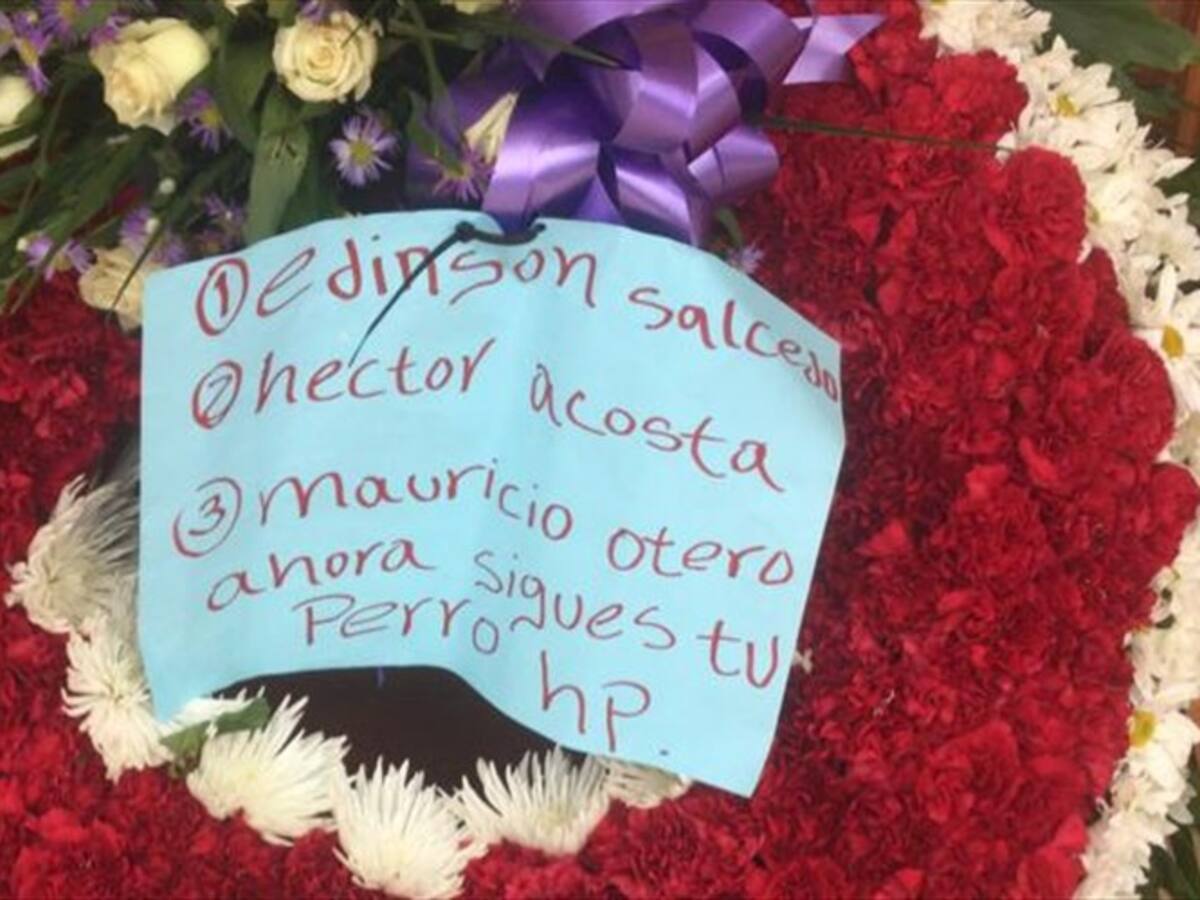 ① edinson salcedo
② hector acosta
③ mauricio otero
ahora sigues tu
perro hp.